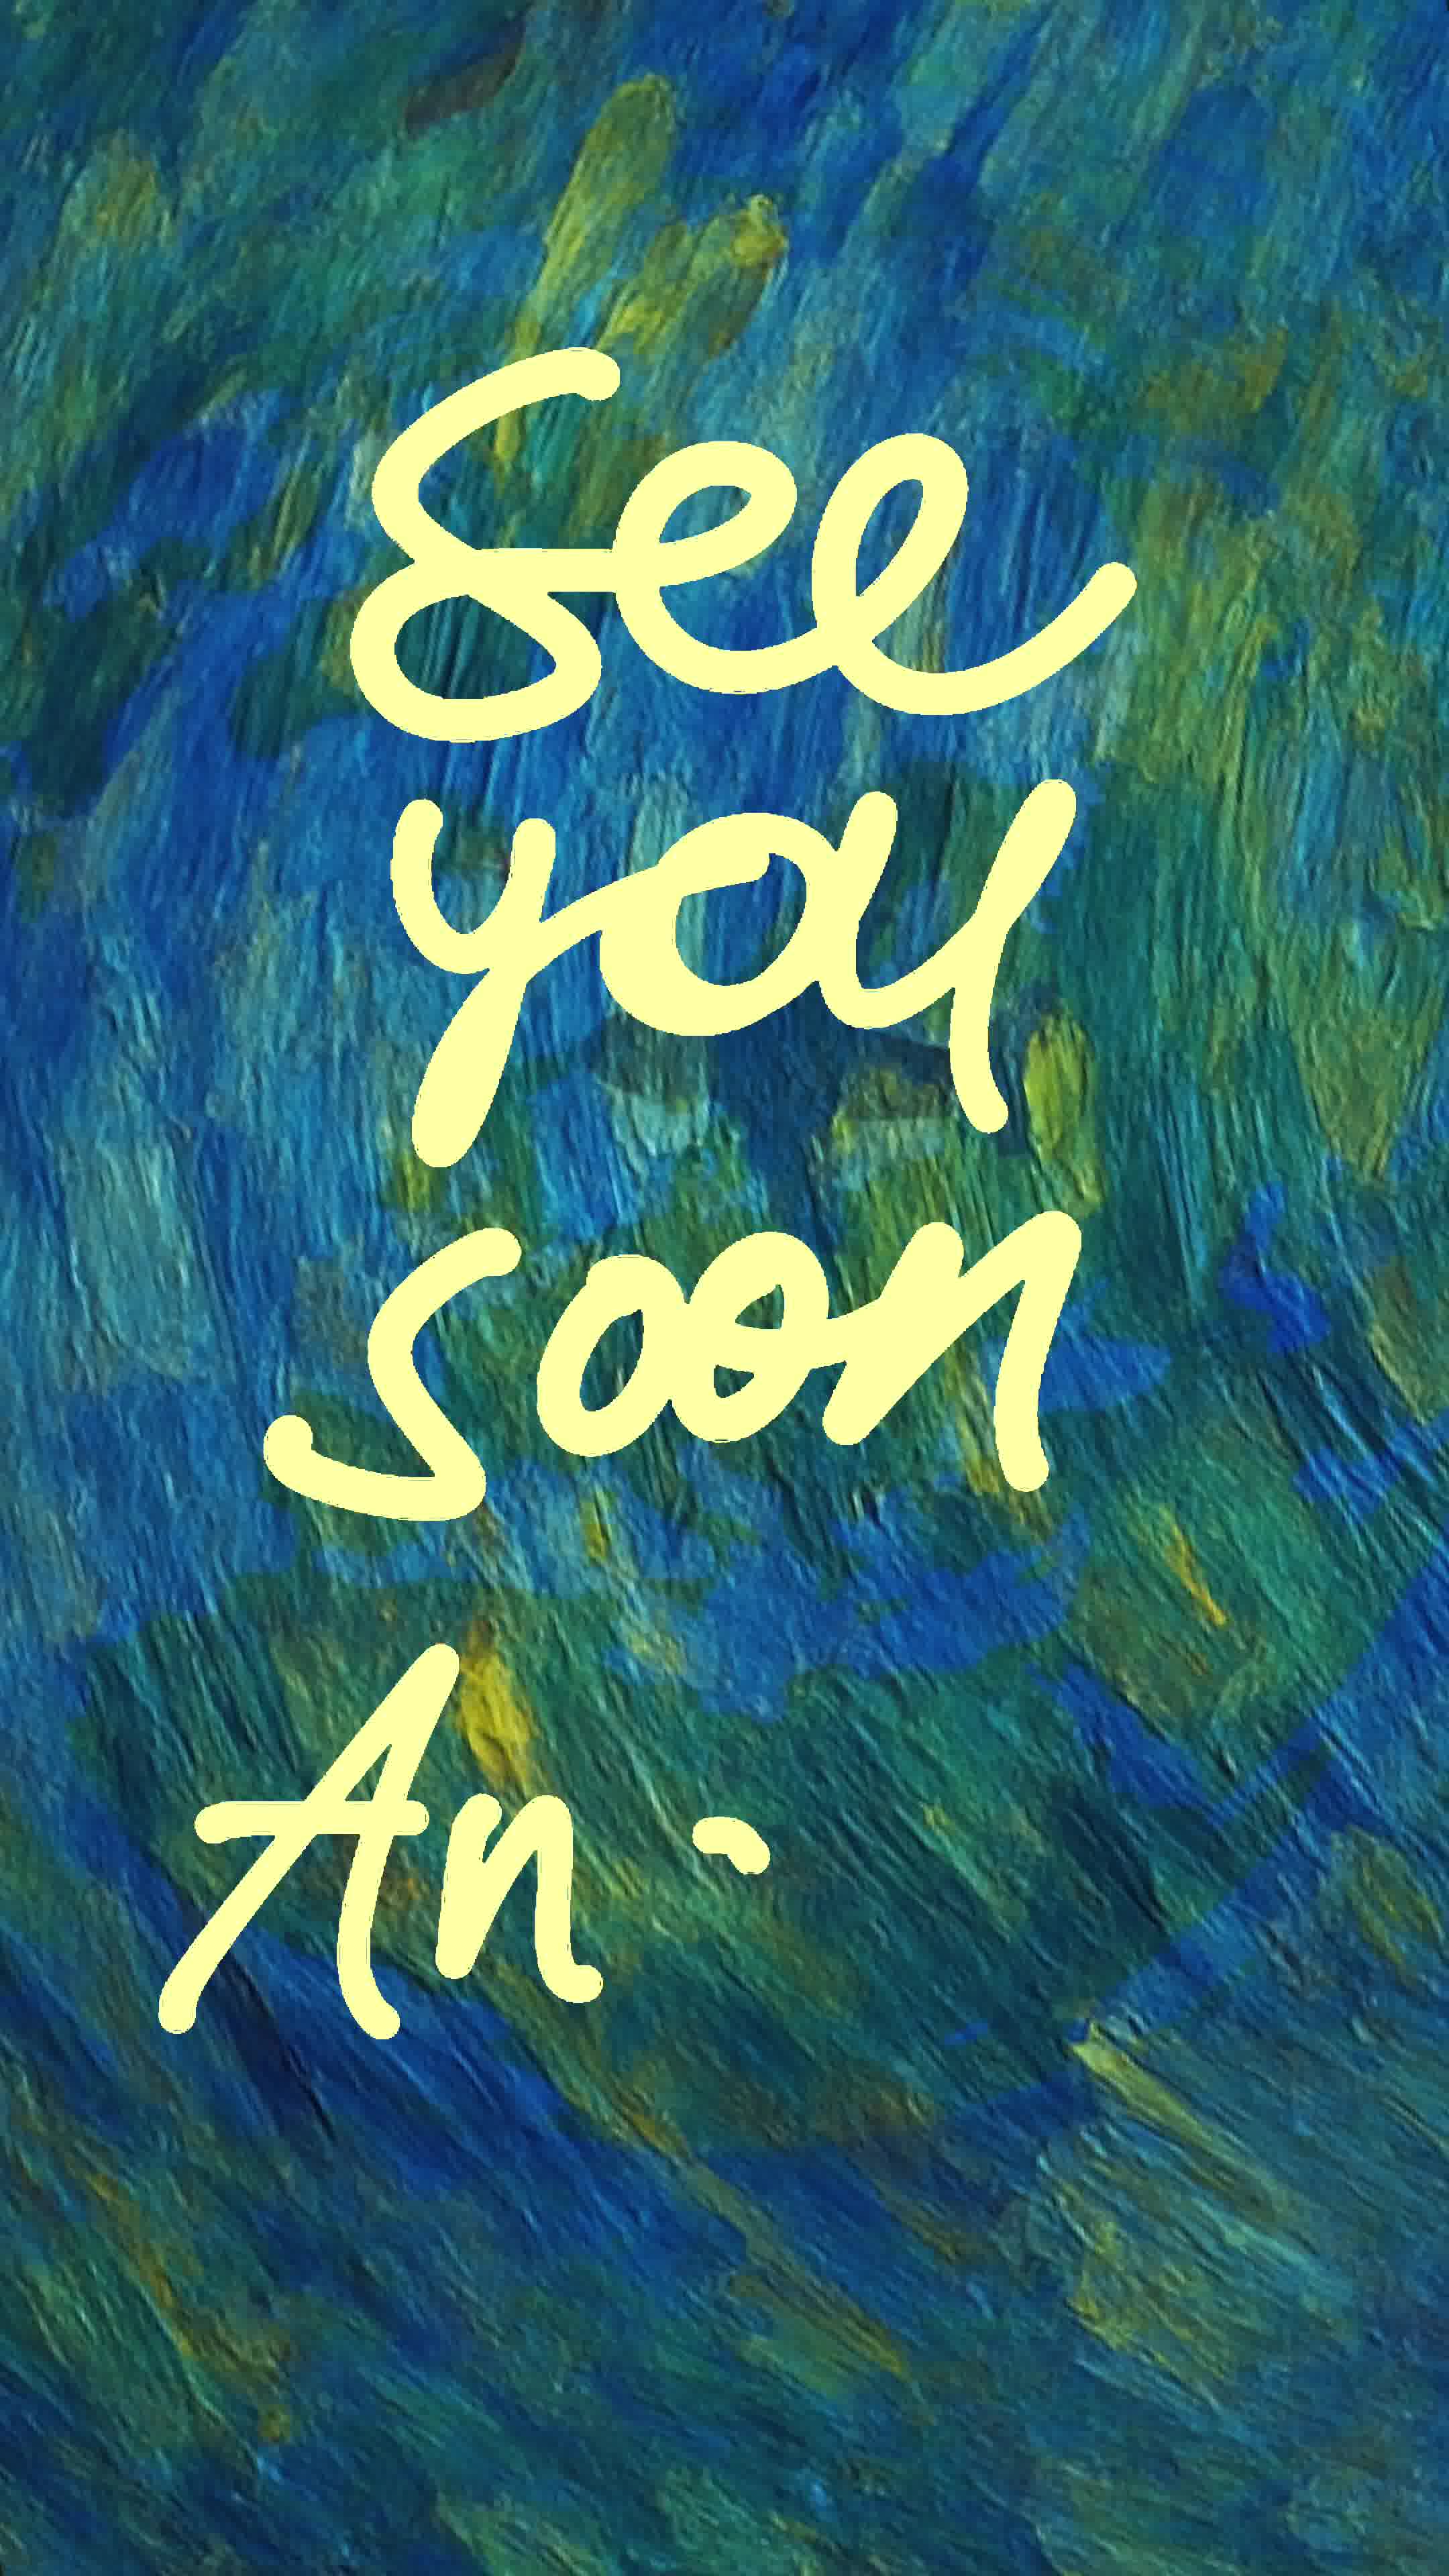 See
you
soon
An.